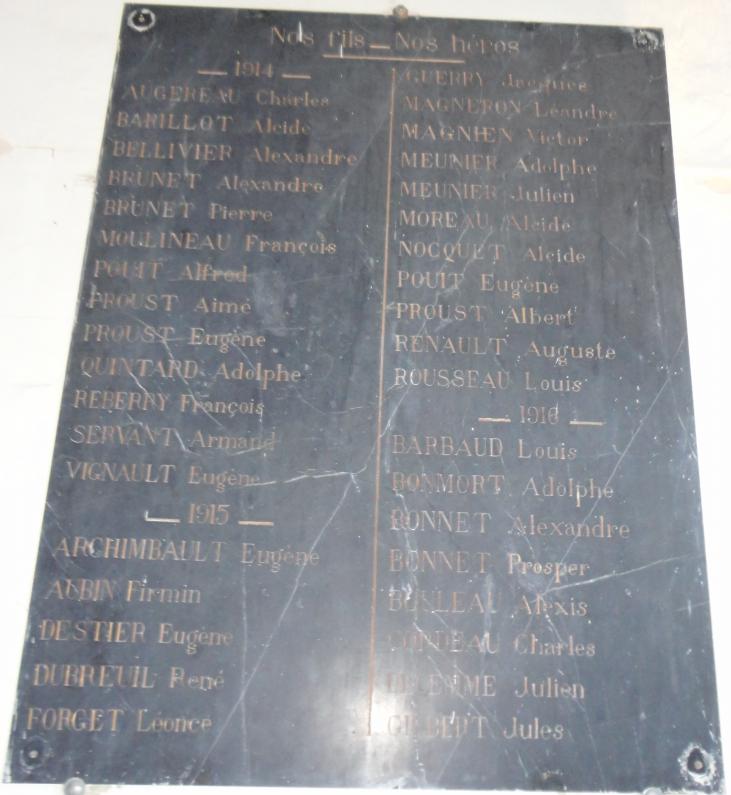 Nos fils _ Nos héros
_ 1914 _
AUGEREAU Charles
BARILLOT Alcide
BELLIVIER Alexandre
BRUNET Alexandre
BRUNET Pierre
MOULINEAU François
POUIT Alfred
PROUST Aimé
PROUST Eugène
QUINTARD Adolphe
REBERRY François
SERVANT Armand
VIGNAULT Eugène
_ 1915 _
ARCHIMBAULT Eugène
AUBIN Firmin
DESTIER Eugène
DUBREUIL René
FORGET Léonce
GUERRY Jacques
MAGNERON Léandre
MAGNIEN Victor
MEUNIER Adolphe
MEUNIER Julien
MOREAU Alcide
NOCQUET Alcide
POUIT Eugène
PROUST Albert
RENAULT Auguste
ROUSSEAU Louis
_ 1916 _
BARBAUD Louis
BONMORT Adolphe
BONNET Alexandre
BONNET Prosper
Alexis
CORDEAU Charles
Julien
GILBERT Jules